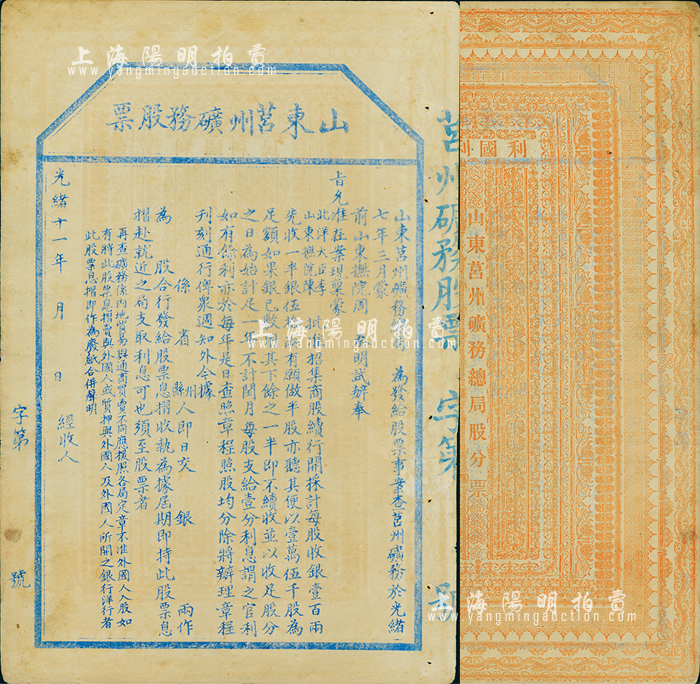 上海陽明拍賣
www.yangmingauction.com
山東莒州礦務股票
山東莒州礦務總局 為發給股票事案查莒州礦務於光緒
七年三月蒙
前山東撫院周 奏明試辦奉
旨允准在案現稟蒙
北洋大臣李
山東撫院陳 批准招集商股續行開採計每股收銀壹百兩
先收一半銀伍拾兩有願做半股亦聽其便以壹萬伍千股為
足額如果銀已敷用其下餘之一半即不續收並以收足股分
之日為始計足一年不計閏月每股支給壹分利息謂之官利
如有餘利亦於每年是日查照章程照股均分除將辦理章程
刊刻通行俾眾週知外今據
係 省 州縣 人即日交 銀 兩作
為 股合行發給股票息摺收執為據屆期即持此股票息
摺赴就近之局支取利息可也須至股票者
再查礦務係內地貿易與通商買賣不同應援照各局定章不准外國人入股如
有將此股票息摺賣與外國人或質押與外國人及外國人所開之銀行洋行者
此股票息摺即作為廢紙合併聲明
光緒十一年 月 日 經收人
字第 號
莒州礦務股票 字第 號
利國利
山東莒州礦務總局股分票
上海陽明拍賣
www.yangmingauction.com